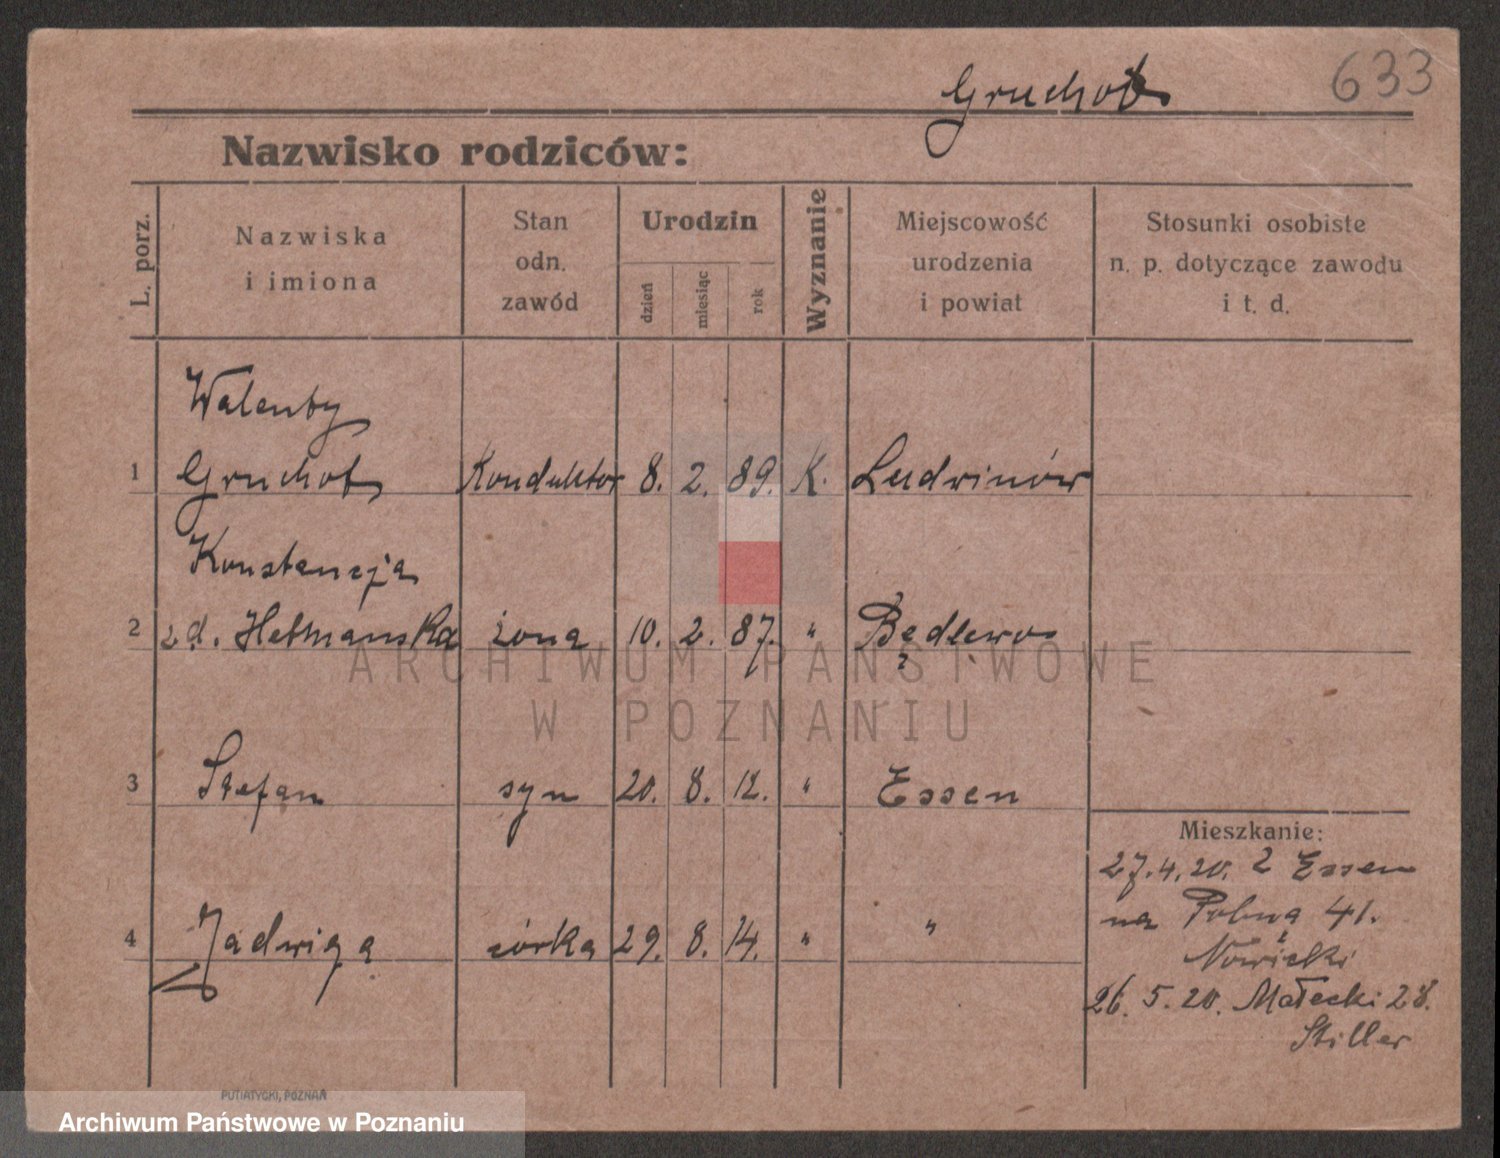 633
Gruchot
Nazwisko rodziców:
L. porz.
Nazwiska
i imiona
Stan
odn.
zawód
Urodzin
dzień
miesiąc
rok
Wyznanie
Miejscowość
urodzenia
i powiat
Stosunki osobiste
n. p. dotyczące zawodu
i t. d.
Walenty
1 Gruchot Konduktor 8. 2. 89. K. Ludwinów
Konstancja
2 zd. Hetmanska żona 10. 2. 87. " Będlewo
3 Stefan syn 20. 8. 12. " Essen
4 Jadwiga córka 29. 8. 14. " "
Mieszkanie:
27.4.20. z Essen
na Polną 41.
Nowicki
26. 5. 20. Małecki 28.
Stiller
ARCHIWUM PAŃSTWOWE
W POZNANIU
PUTIATYCKI, POZNAŃ
Archiwum Państwowe w Poznaniu